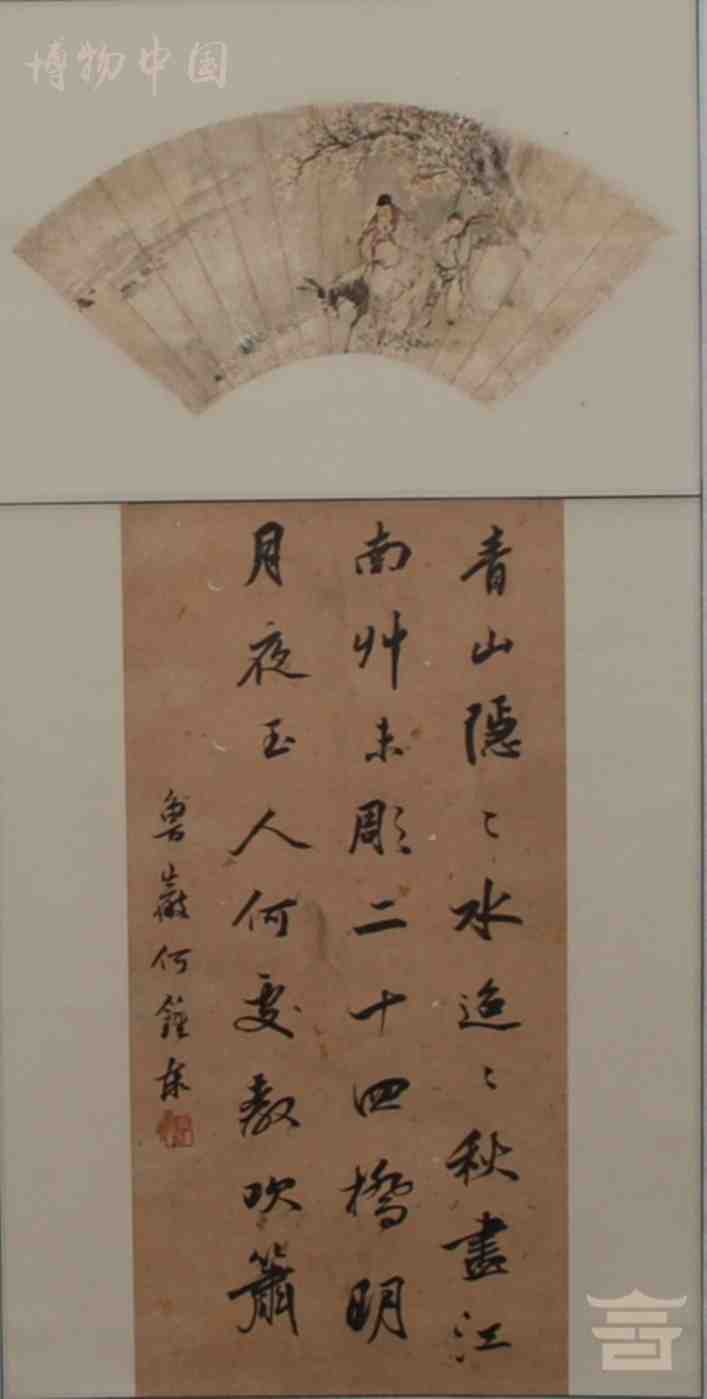 博物中国
青山隱〻水迢〻秋盡江
南艸未彫二十四橋明
月夜玉人何處教吹簫
魯巖何鍾